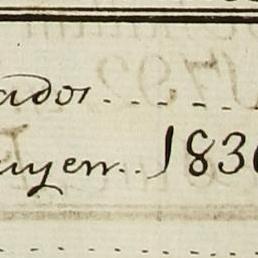 ados.....
uyen..1830